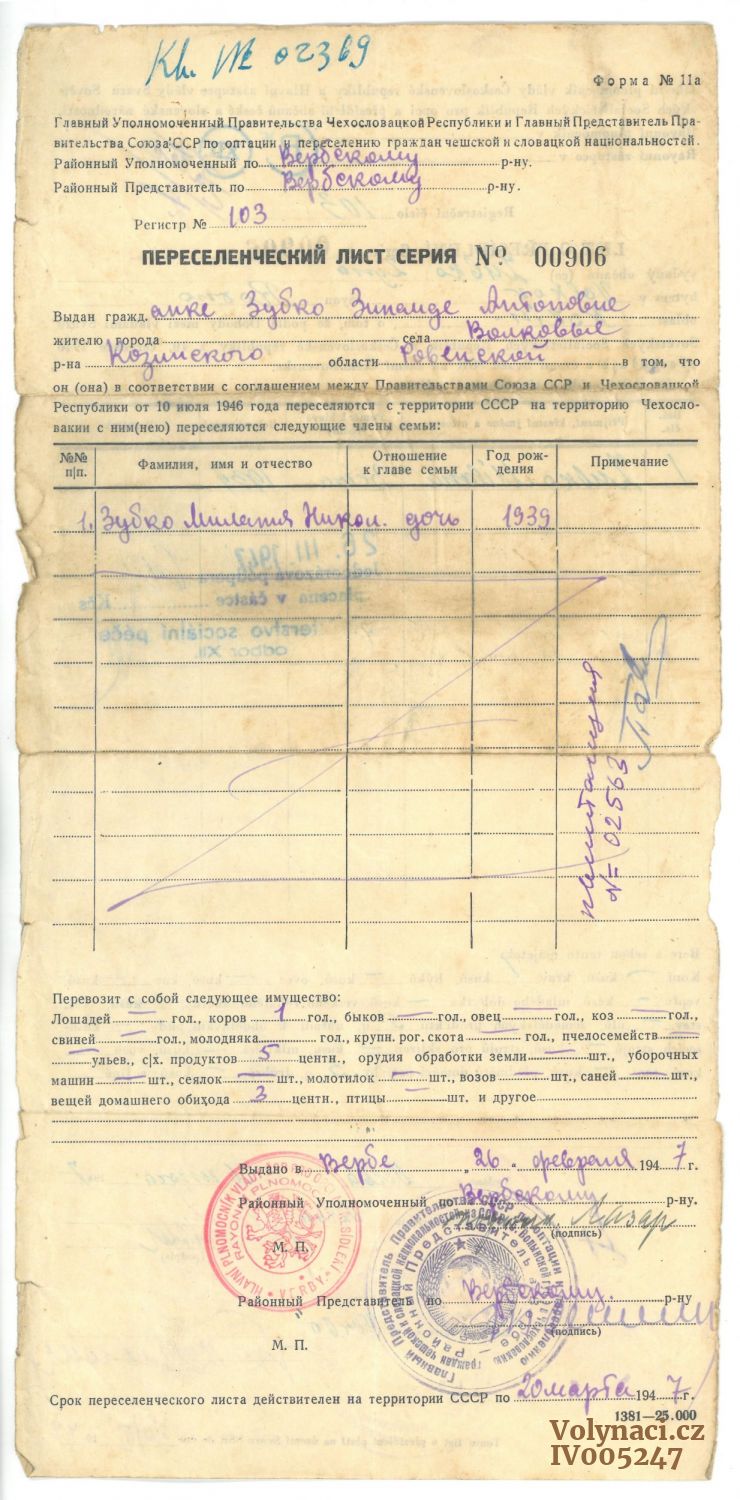 Кв. № 02369
Форма № 11а
Главный Уполномоченный Правительства Чехословацкой Республики и Главный Представитель Пра-
вительства Союза ССР по оптации и переселению граждан чешской и словацкой национальностей.
Районный Уполномоченный по Вербскому р-ну.
Районный Представитель по Вербскому р-ну.
Регистр № 103
ПЕРЕСЕЛЕНЧЕСКИЙ ЛИСТ СЕРИЯ № 00906
Выдан гражд. анке Зубко Зинаиде Антоновне
жителю города села Волковые
р-на Козинского области Ровенской в том, что
он (она) в соответствии с соглашением между Правительствами Союза ССР и Чехословацкой
Республики от 10 июля 1946 года переселяются с территории СССР на территорию Чехосло-
вакии с ним(нею) переселяются следующие члены семьи:
№№ п|п. Фамилия, имя и отчество Отношение к главе семьи Год рож- дения Примечание
1. Зубко Милания Никол. дочь 1939
квитанция
№ 02563
26. III. 1947
placena v částce Kčs
sociální péče
odbor XII.
Перевозит с собой следующее имущество:
Лошадей — гол., коров 1 гол., быков — гол., овец — гол., коз — гол.,
свиней — гол., молодняка гол., крупн. рог. скота — гол., пчелосемейств —
— ульев., с|х. продуктов 5 центн., орудия обработки земли — шт., уборочных
машин — шт., сеялок — шт., молотилок — шт., возов — шт., саней — шт.,
вещей домашнего обихода 3 центн., птицы — шт. и другое
Выдано в Вербе „26" февраля 1947 г.
Районный Уполномоченный по Вербскому р-ну.
М. П.
(подпись)
HLAVNÍ PLNOMOCNÍK VLÁDY
VERBA
Районный Представитель по Вербскому. р-ну
(подпись)
М. П.
Главный Представитель Правительства
Районный Представитель
Срок переселенческого листа действителен на территории СССР по 20 марта 1947 г.
1381—25.000
Volynaci.cz
IV005247